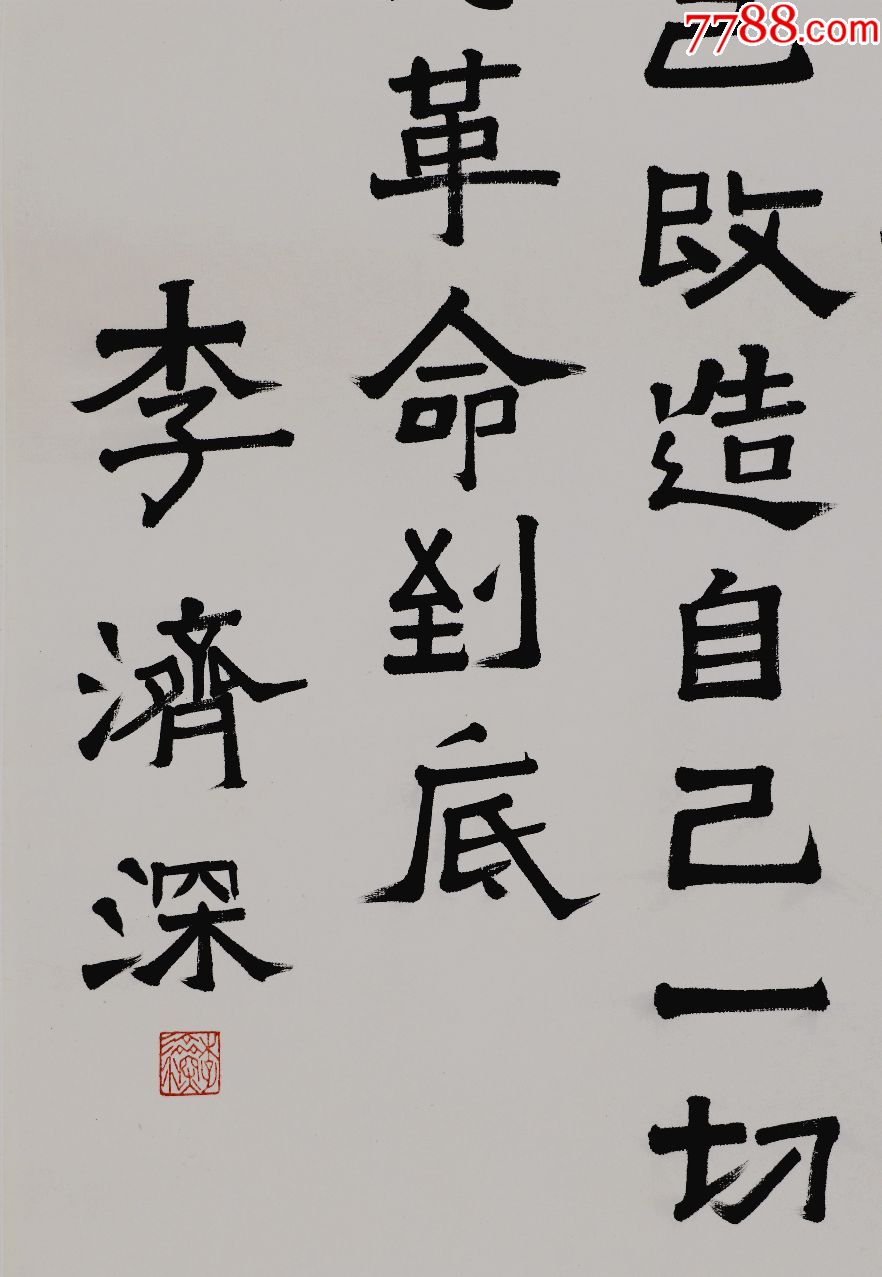 7788.com
己改造自己一切
革命到底
李濟深